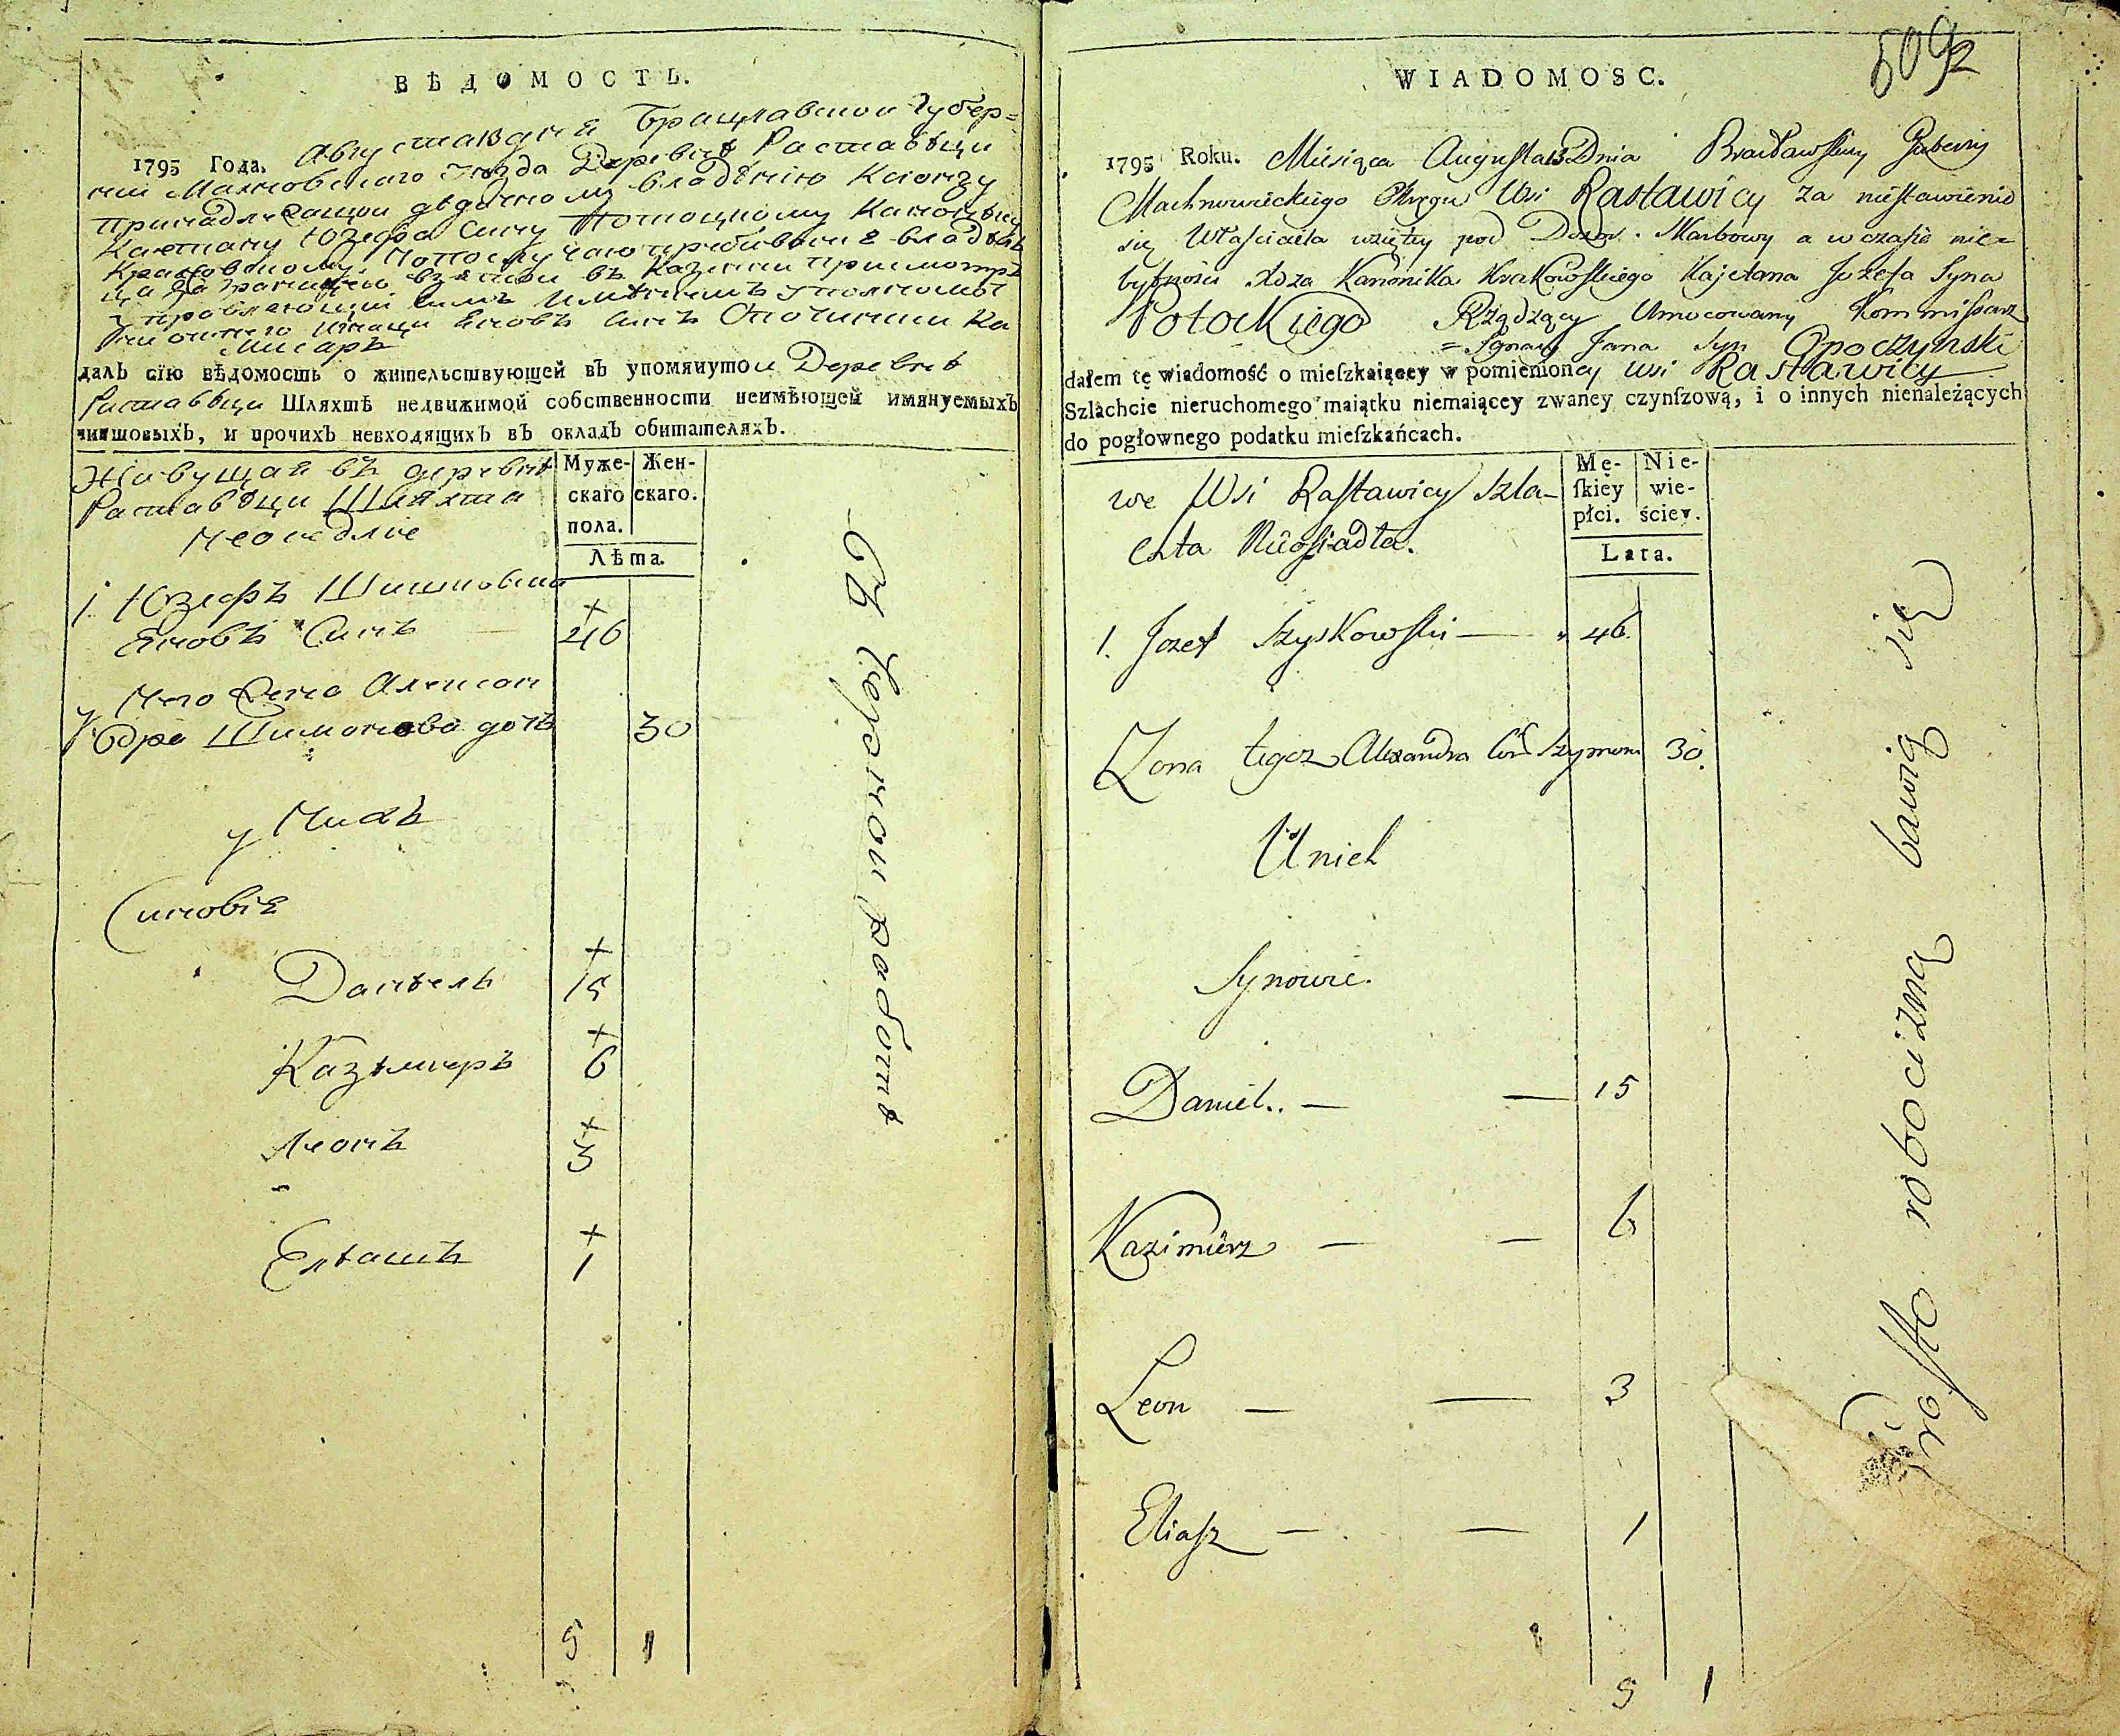 ВѢДОМОСТЬ.
1795 Года. Августа 13 дня Брацлавской Губер=
нии Махновскаго уезда Деревне Раставѣци
принадлежащои дѣдичному владѣнию Ксіондзу
Каетану Юзефа сину Потоцкому Канонѣку
Краковскому
взятои въ казении присмотръ
Опочински Ка
мисаръ
далъ сію вѣдомость о жительствующей въ упомянутои Деревне
Раставѣци Шляхтѣ недвижимой собственности неимѣющей имянуемыхъ
чиншовыхъ, и прочихъ невходящихъ въ окладъ обитателяхъ.
Живущая въ деревне
Раставѣци Шляхта
неоседлие
Муже- Жен-
скаго скаго.
пола.
Лѣта.
1. Юзефъ Шишковски
Яновъ Синъ 46
У Него Жена Алексан
дра Шимонова дочь 30
у Нихъ
Синовіе
Данѣель 15
Казѣмиръ 6
Леонъ 3
Елѣашъ 1
5 1
Съ Черной работѣ
5092
WIADOMOSC.
1795 Roku. Miesiąca Augusta 13 Dnia Bracławskiey Guberniy
Machnowieckiego Okręgu Wsi Rastawicy za niestawienie
się Właściciela wziętey pod Dozor Skarbowy a w czasie nie=
bytności Xdza Kanonika Krakowskiego Kajetana Jozefa Syna
Potockiego Rządzący Umocowany Kommissarz
= Ignacy Jana Syn Opoczynski
dałem tę wiadomość o mieſzkaiącey w pomienioney Wsi Rastawicy
Szlachcie nieruchomego maiątku niemaiącey zwaney czynſzową, i o innych nienależących
do pogłownego podatku mieſzkańcach.
we Wsi Rastawicy Szla-
chta Nieosiadła.
Mę- Nie-
ſkiey wie-
płci. ściey.
Lata.
1. Jozef Szyskowski — 46.
Zona tegoz Alexandra Cor. Szymona 30.
U nich
Synowie.
Daniel.. — — 15
Kazimierz — — 6
Leon — — 3
Eliasz — — 1
5 1
Prosto robocizną bawią się